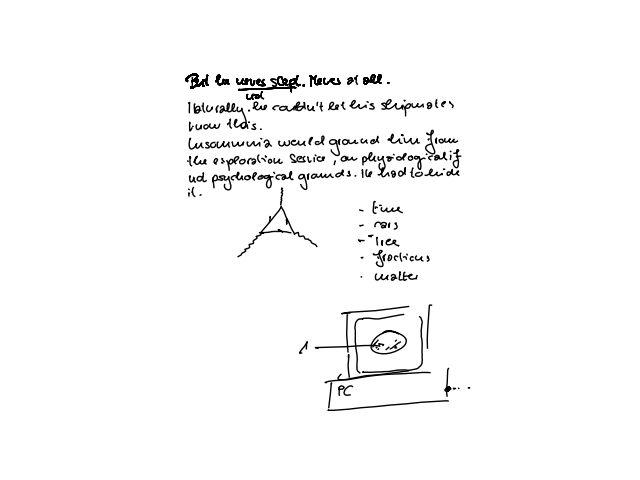 But he never slept. Never at all.
Naturally, he couldn't let his shipmates
know this.
Insomnia would ground him from
the exploration service, on physiological if
not psychological grounds. He had to hide
it.
- time
- rais
- Tree
- fractions
- matter
1
PC